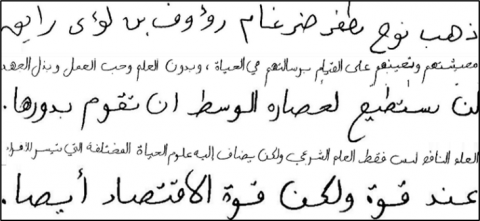 ذهب نوح بظفر ضرغام رؤوف بن لؤي رايق
معيشتهم وتعينهم على القيام برسالتهم في الحياة ، وبدون العلم وحب العمل وبذل الجهد
لن نستطيع لعصاره الوسط ان تقوم بدورها.
العلم النافع ليس فقط العلم الشرعي ولكن يضاف إليه علوم الحياة المختلفة التي تيسر للأفراد
عند قوة ولكن قوة الاقتصاد أيضا.